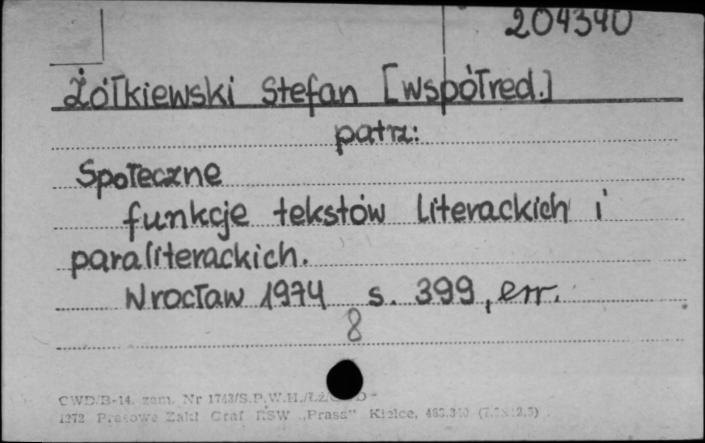 204340
Żółkiewski Stefan [współred.]
patrz:
Społeczne
funkcje tekstów literackich i
paraliterackich.
Wrocław 1974 s. 399, err.
8
CWD/B-14. zam. Nr 1743/S.P.W.H./
1972 Prasowe Zakł Graf RSW „Prasa” Kielce,